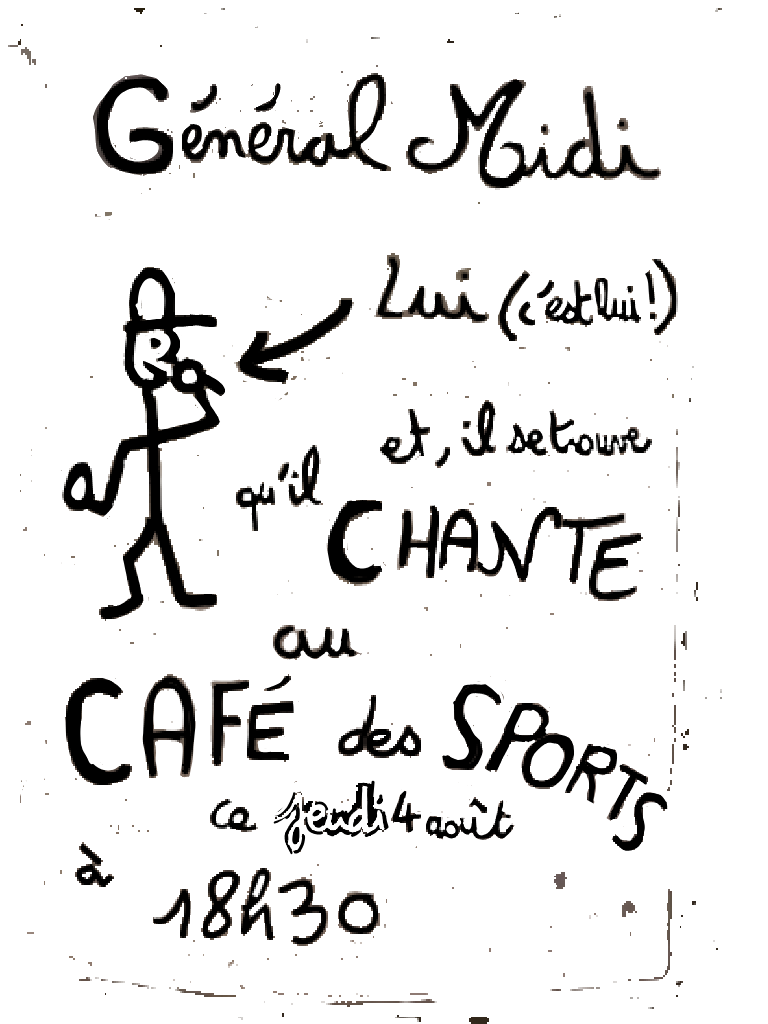 Général Midi
Lui (c'est lui!)
et, il se touve
qu'il CHANTE
au
CAFÉ des SPORTS
ce jeudi 4 août
à 18h30